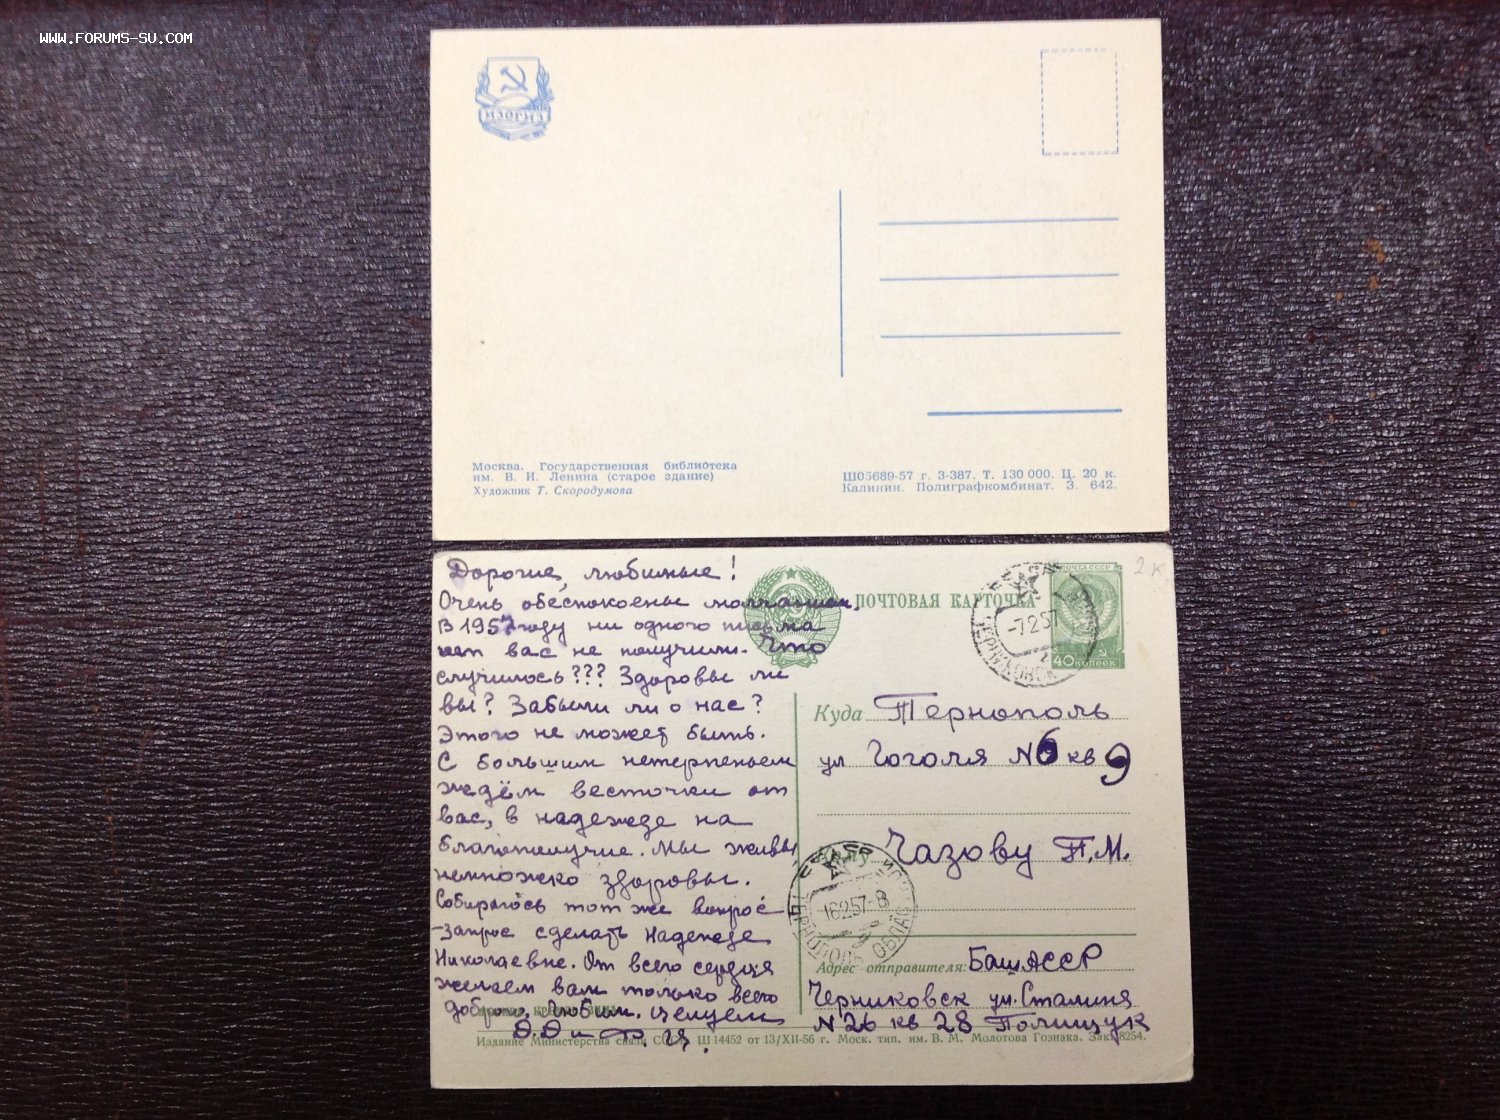 WWW.FORUMS-SU.COM
ИЗОГИЗ
Москва. Государственная библиотека
им. В. И. Ленина (старое здание)
Художник Т. Скородумова
Ш05689-57 г. З-387. Т. 130 000. Ц. 20 к.
Калинин. Полиграфкомбинат. З. 642.
Дорогие, любимые!
Очень обеспокоены молчанием,
В 1957 году ни одного письма
от вас не получили. Что
случилось??? Здоровы ли
вы? Забыли ли о нас?
Этого не может быть.
С большим нетерпеньем
ждём весточки от
вас, в надежде на
благополучие. Мы живы,
немножко здоровы.
Собираюсь тот же вопрос
-запрос сделать Надежде
Николаевне. От всего сердца
желаем вам только всего
доброго. Любим. Целуем
ПОЧТОВАЯ КАРТОЧКА
ПОЧТА СССР
40 КОПЕЕК
2 к
-7257
ЧЕРНИКОВСК
Куда Тернополь
ул Гоголя N 6 кв 9
Чазову П.М.
16257-8
Адрес отправителя: БашАССР
Черниковск ул. Сталина
N 26 кв 28 Полищук
Издание Министерства связи СССР. Ш 14452 от 13/XII-56 г. Моск. тип. им. В. М. Молотова Гознака. Зак. 8254.